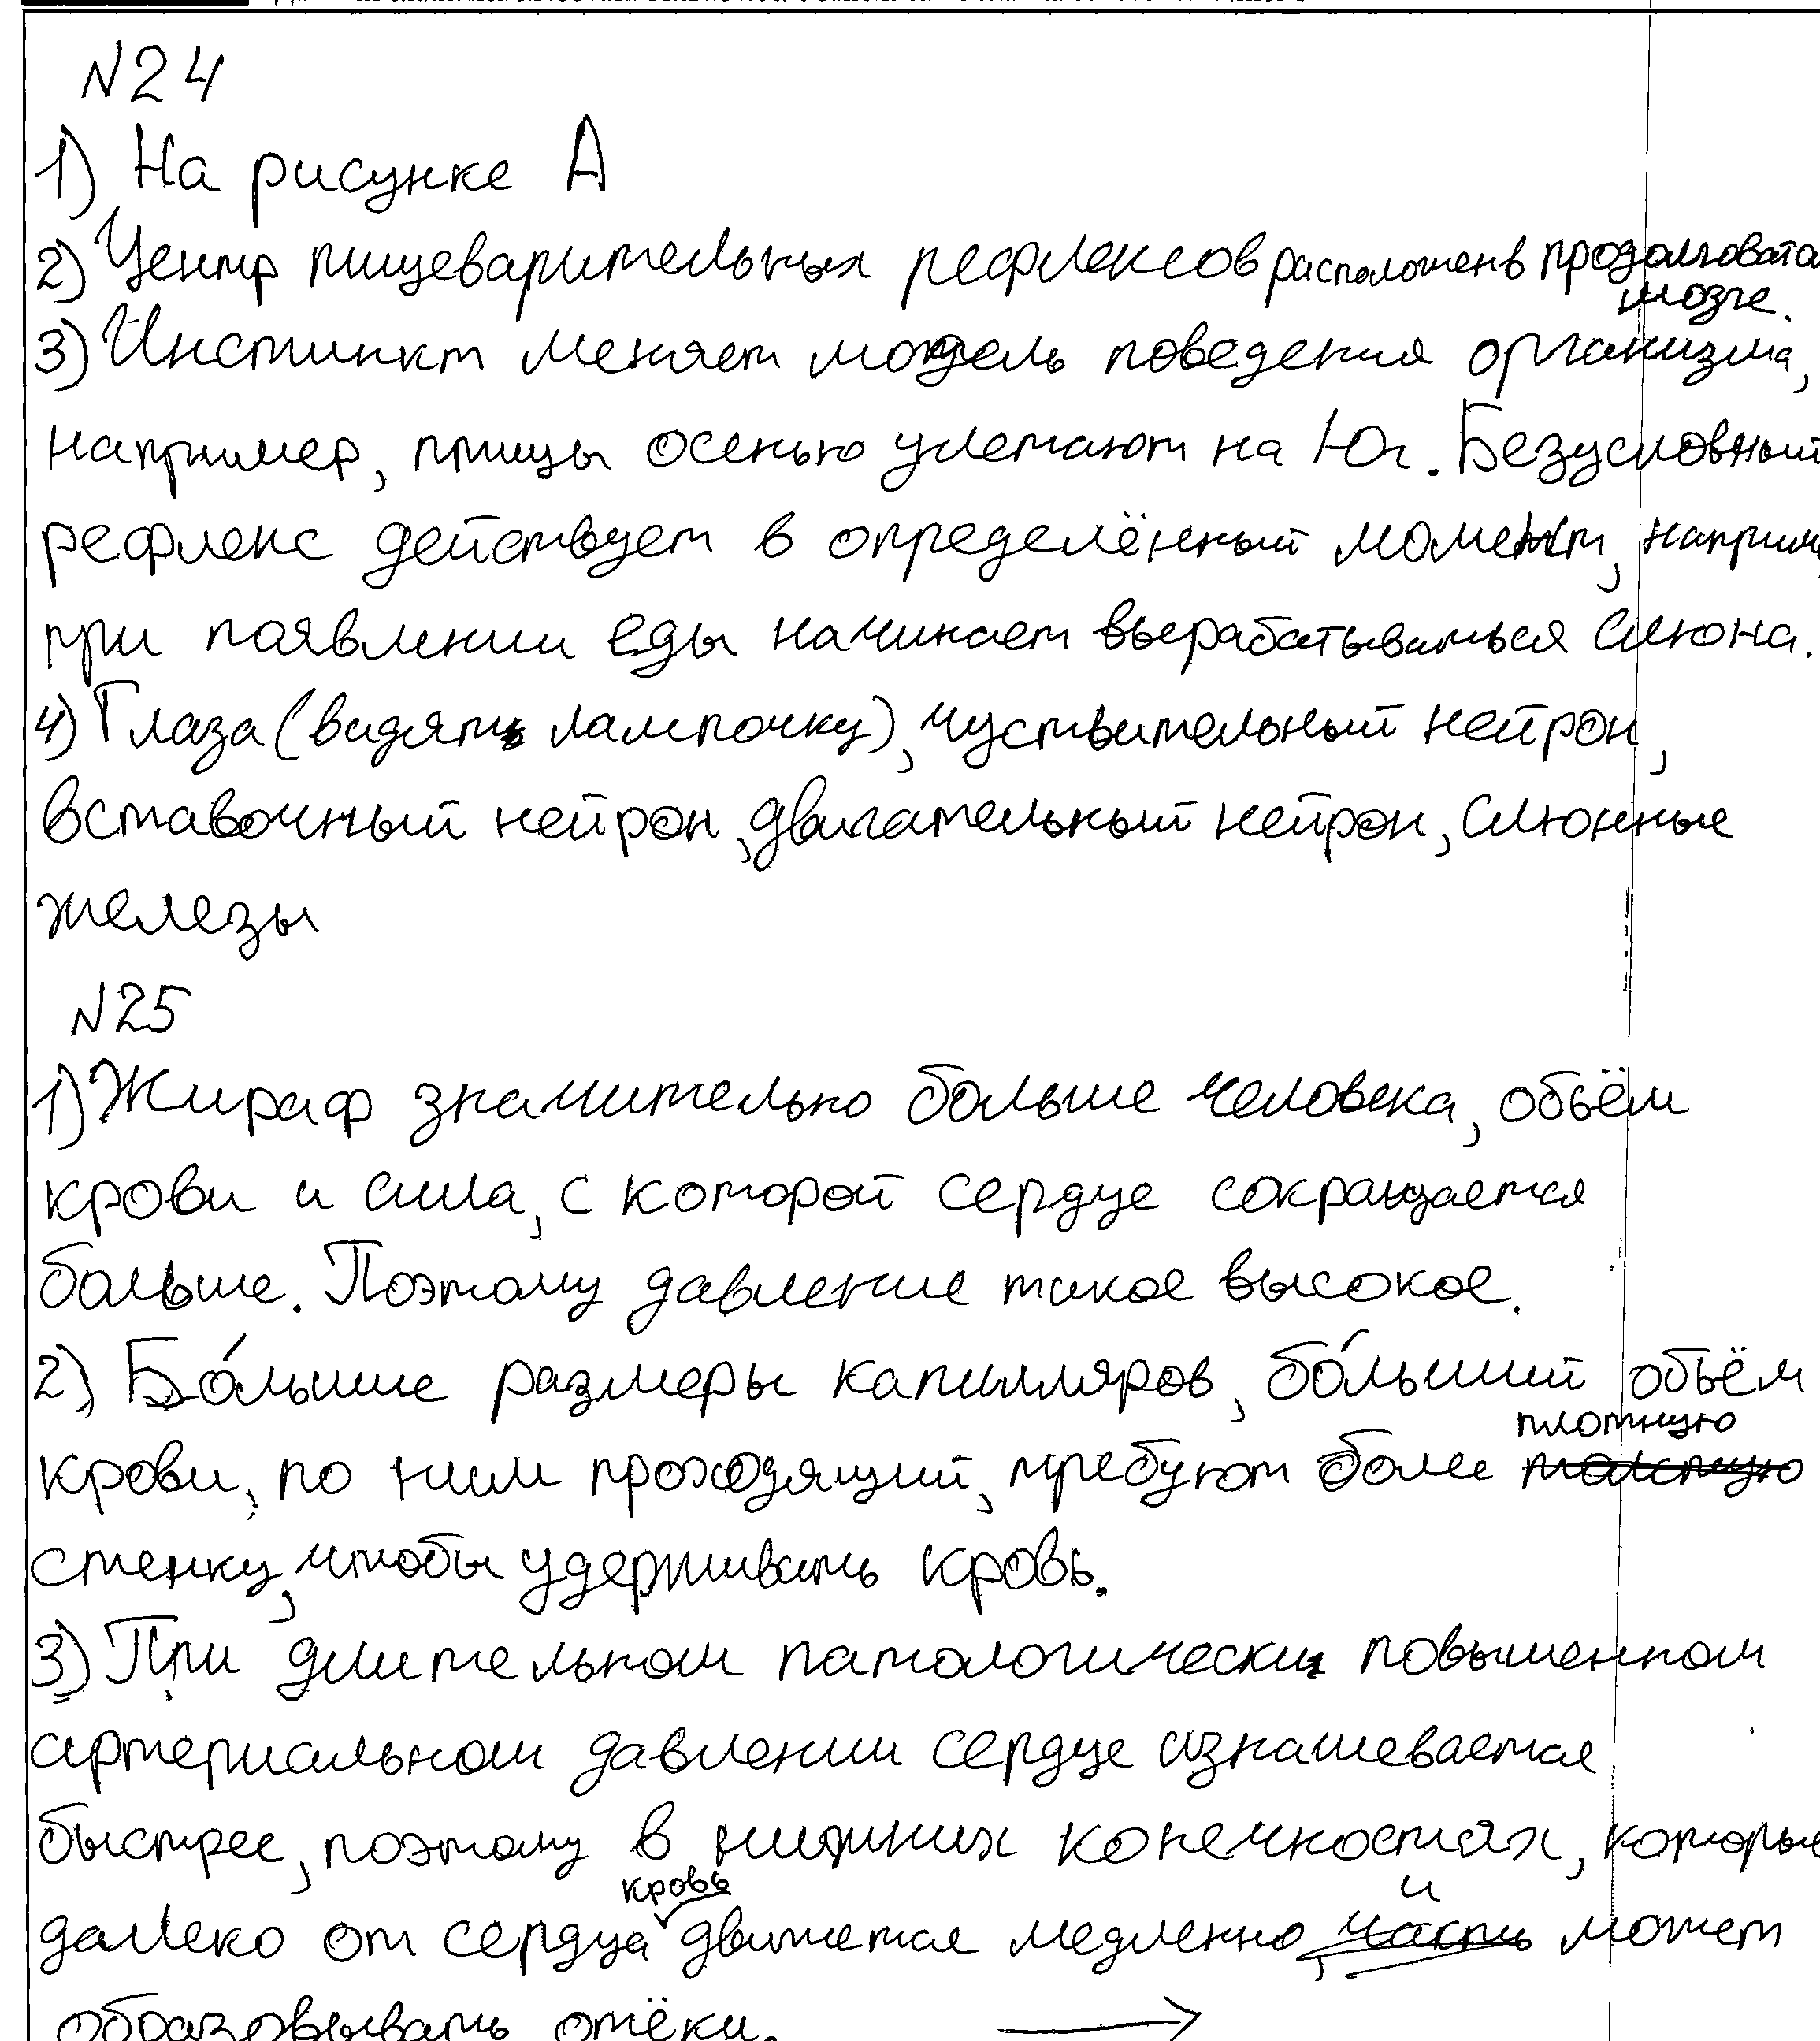 №24
1) На рисунке А
2) Центр пищеварительных рефлексов расположен в продолговата
мозге.
3) Инстинкт меняет модель поведения организма,
например, птицы осенью улетают на Юг. Безусловный
рефлекс действует в определённый момент, наприм
при появлении еды начинает вырабатываться слюна.
4) Глаза (видять лампочку), чуствительный нейрон,
вставочный нейрон, двигательный нейрон, слюнные
железы
№25
1) Жираф значительно больше человека, объём
крови и сила, с которой сердце сокращается
больше. Поэтому давление такое высокое.
2) Бо́льшие размеры капилляров, бо́льший объём
крови, по ним проходящий, требуют более плотную толстую
стенку, чтобы удерживать кровь.
3) При длительном патологически повышенном
артериальном давлении сердце изнашевается
быстрее, поэтому в нижних конечностях, которые
далеко от сердца кровь движется медленно, и может
образовывать отёки.